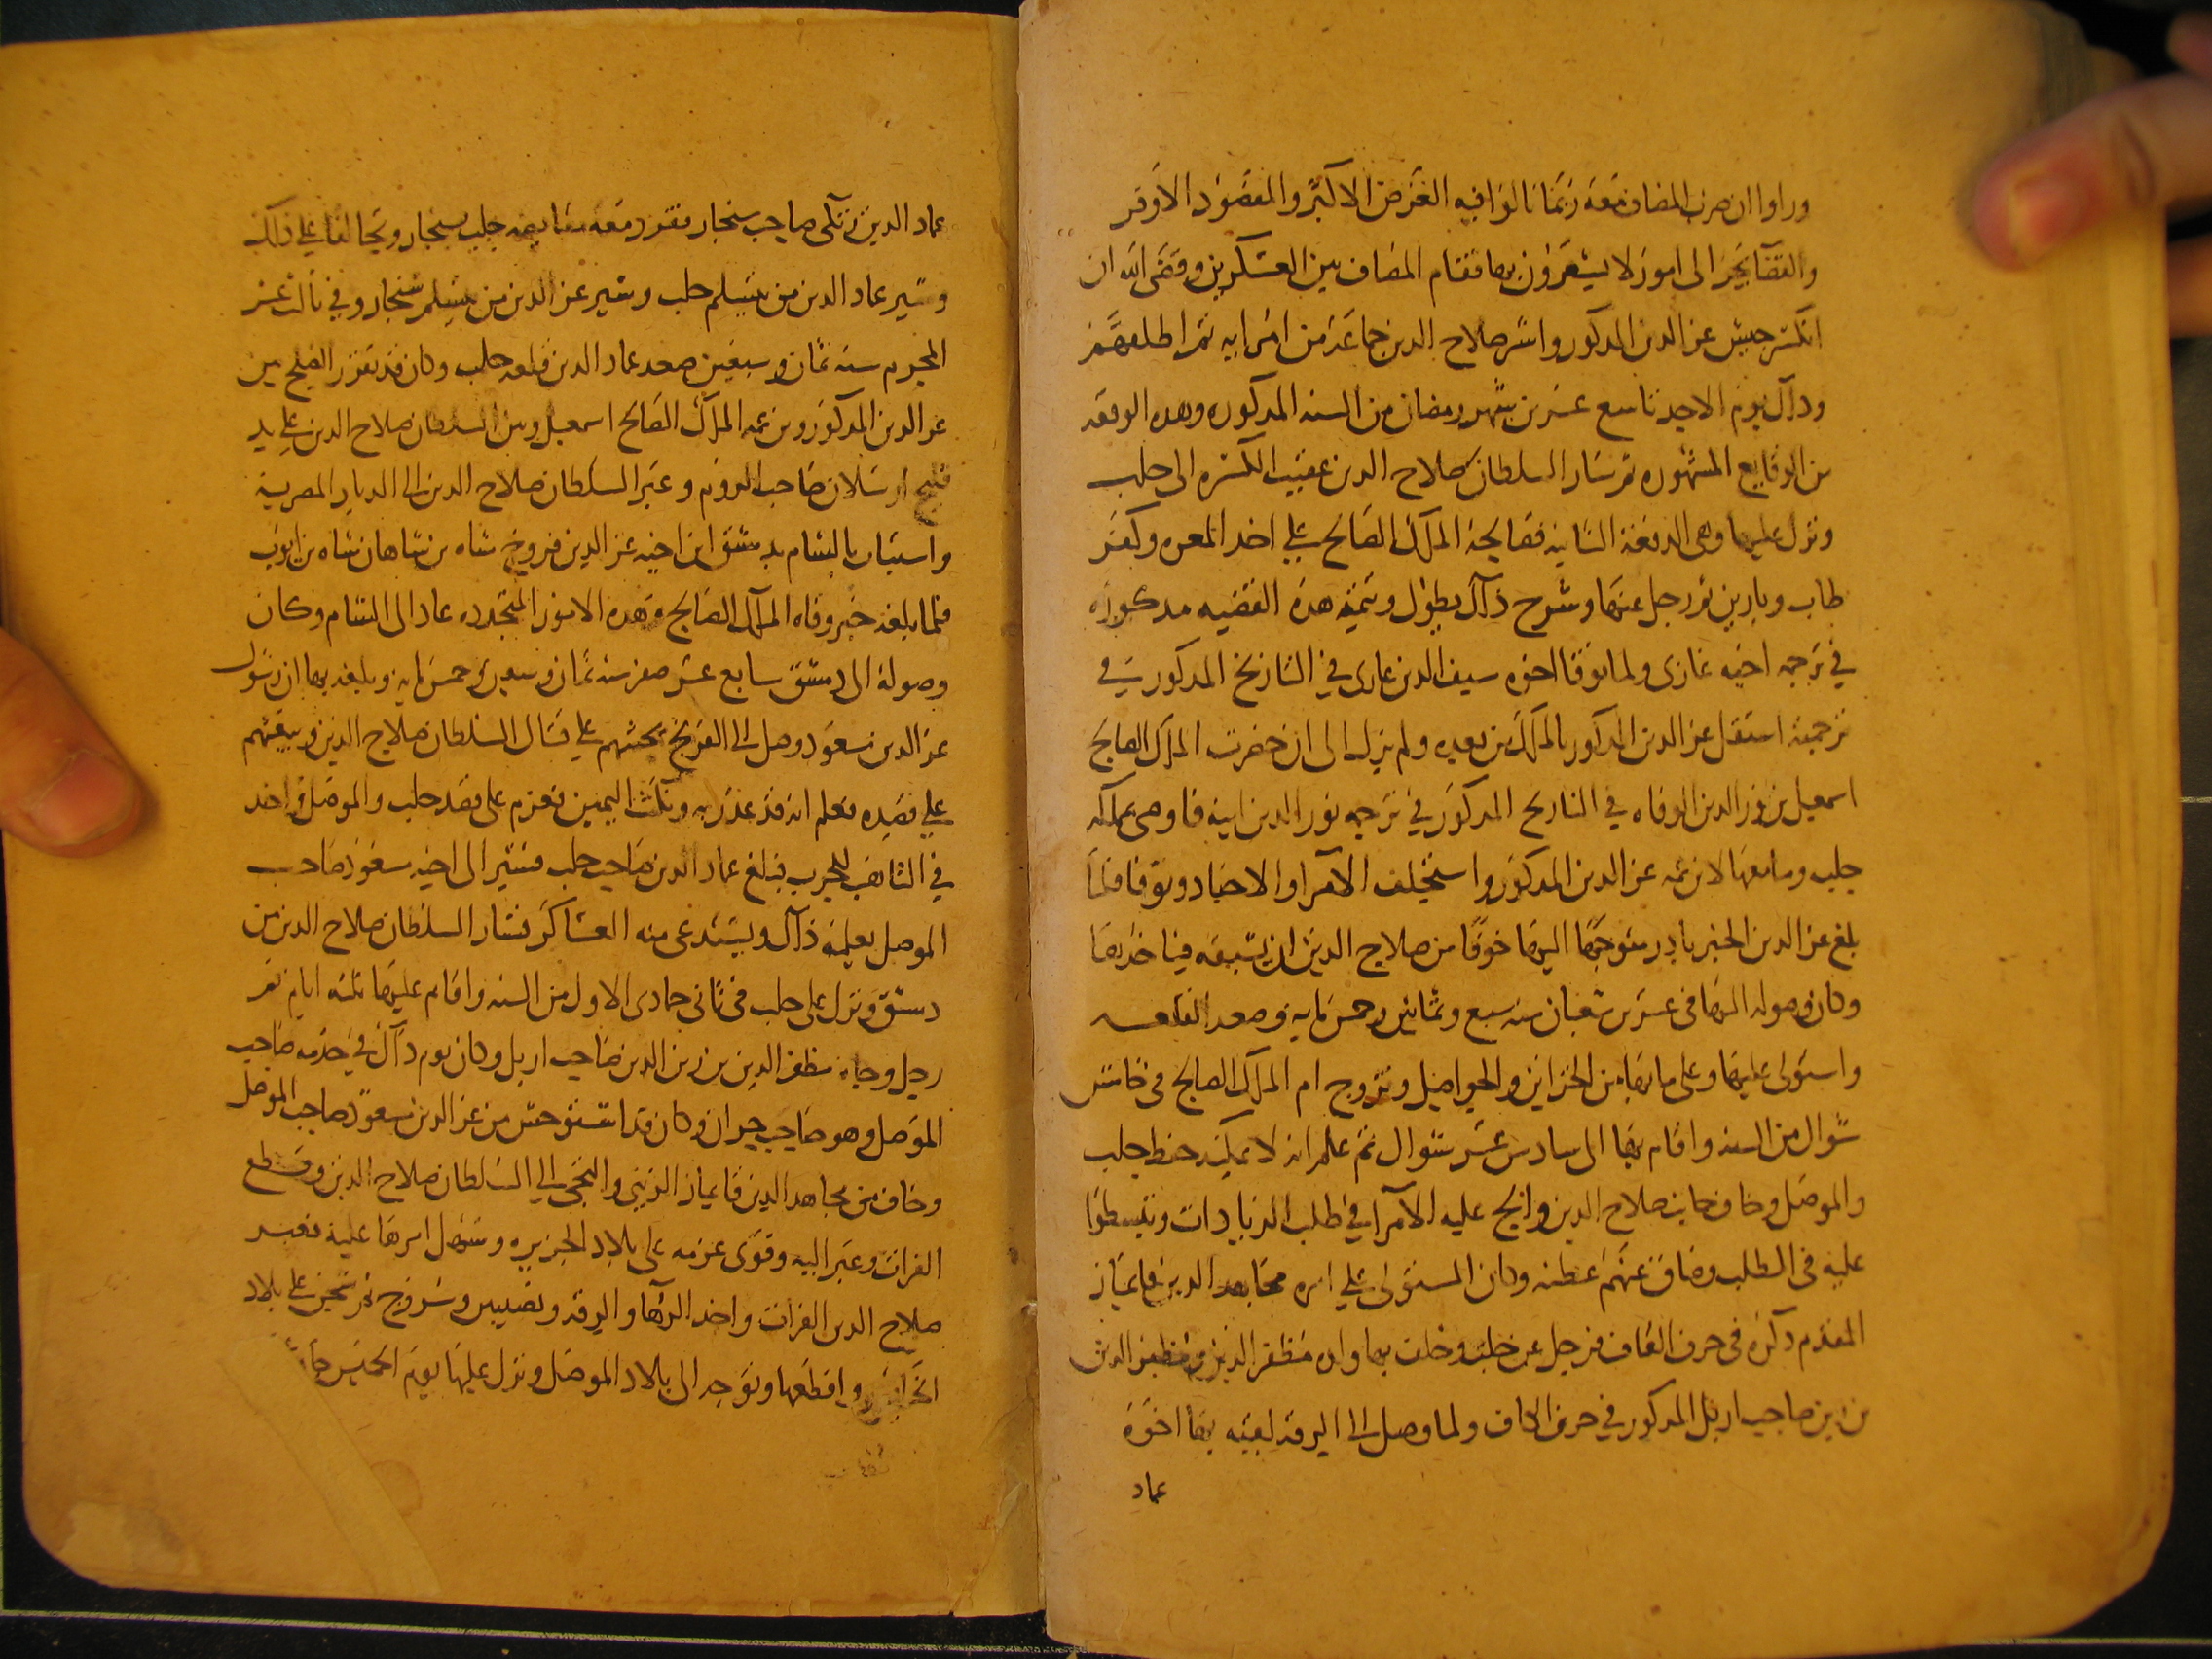 وراوا ان ضرب المصاف معه ربما نالوا فيه الغرض الاكبر والمقصود الاوفر
والقضا يجر الى امور لا يشعرون بها فقام المصاف بين العسكرين وقضى الله ان
انكسر جيش عز الدين المذكور واسر صلاح الدين جماعة من امرايه ثم اطلقهم
وذلك يوم الاحد تاسع عشر من شهر رمضان من السنه المذكوره وهذه الوقعه
من الوقايع المشهوره ثم سار السلطان صلاح الدين عقيب الكسره الى حلب
ونزل عليها وهى الدفعة الثانيه فصالحه الملك الصالح على اخذ المعره وكفر
طاب وبارين ثم رحل عنها وشرح ذلك يطول وتتمة هذه القضيه مذكورة
في ترجمه اخيه غازى ولما توفا اخوه سيف الدين غازى في التاريخ المذكور في
ترجمته استقل عز الدين المذكور بالملك من بعده ولم يزل الى ان حضرت الملك الصالح
اسمعيل بن نور الدين الوفاه في التاريخ المذكور في ترجمه نور الدين ابيه فاوصى بمملكه
حلب وما معها لابن عمه عز الدين المذكور واستحلف الامرا والاجناد وتوفا فلما
بلغ عز الدين الخبر بادر متوجها اليها خوفا من صلاح الدين ان يسبقه فياخذها
وكان وصوله اليها فى عشرين شعبان سنه سبع وثمانين وخمسمايه وصعد القلعه
واستولى عليها وعلى ما بها من الخزاين والحواصل وتزوج ام الملك الصالح فى خامس
شوال من السنه واقام بها الى سادس عشر شوال ثم علم انه لا يمكنه حفظ حلب
والموصل وخاف من جانب صلاح الدين والح عليه الامرا في طلب الزيادات وتبسطوا
عليه فى الطلب وضاق عنهم عطنه وكان المستولى على امره مجاهد الدين قايماز
المقدم ذكره فى حرف القاف فرحل عن حلب وخلف بها ولده مظفر الدين ومظفر الدين
بن زين صاحب اربل المذكور في حرف الكاف ولما وصل الى الرقه لقيه بها اخوه
عماد
عماد الدين زنكى صاحب سنجار فقرر معه مقايضه حلب بسنجار وتحالفا على ذلك
وسير عماد الدين من يتسلم حلب وسير عز الدين من يتسلم سنجار وفي ثالث عشر
المحرم سنه ثمان وسبعين صعد عماد الدين قلعه حلب وكان قد تقرر الصلح بين
عز الدين المذكور وبن عمه الملك الصالح اسمعيل وبين السلطان صلاح الدين على يد
قليج ارسلان صاحب الروم وعبر السلطان صلاح الدين الى الديار المصرية
واستناب بالشام بدمشق ابن اخيه عز الدين فروخ شاه بن شاهان شاه بن ايوب
فلما بلغه خبر وفاه الملك الصالح وهذه الامور المتجدده عاد الى الشام وكان
وصوله الى دمشق سابع عشر صفر سنه ثمان وسبعين وخمسمايه وبلغه بها ان رسول
عز الدين مسعود وصل الى الفرنج يحثهم على قتال السلطان صلاح الدين ويبعثهم
على قصده فعلم انه قد غدر به ونكث اليمين فعزم على قصد حلب والموصل واخذ
في التاهب للحرب فبلغ عماد الدين صاحب حلب فسير الى اخيه مسعود صاحب
الموصل يعلمه ذلك ويستدعى منه العساكر فسار السلطان صلاح الدين من
دمشق ونزل على حلب فى ثانى جمادى الاول من السنه واقام عليها ثلثه ايام ثم
رحل وجاه مظفر الدين بن زين الدين صاحب اربل وكان يوم ذلك في خدمه صاحب
الموصل وهو صاحب حران وكان قد استوحش من عز الدين مسعود صاحب الموصل
وخاف من مجاهد الدين قايماز الزينى والتجى الى السلطان صلاح الدين وقطع
الفرات وعبر اليه وقوى عزمه على بلاد الجزيره وسهل امرها عليه فعبر
صلاح الدين الفرات واخذ الرها والرقه ونصيبين وسروج ثم شحن على بلاد
الخابور واقطعها وتوجه الى بلاد الموصل ونزل عليها يوم الخميس حادى